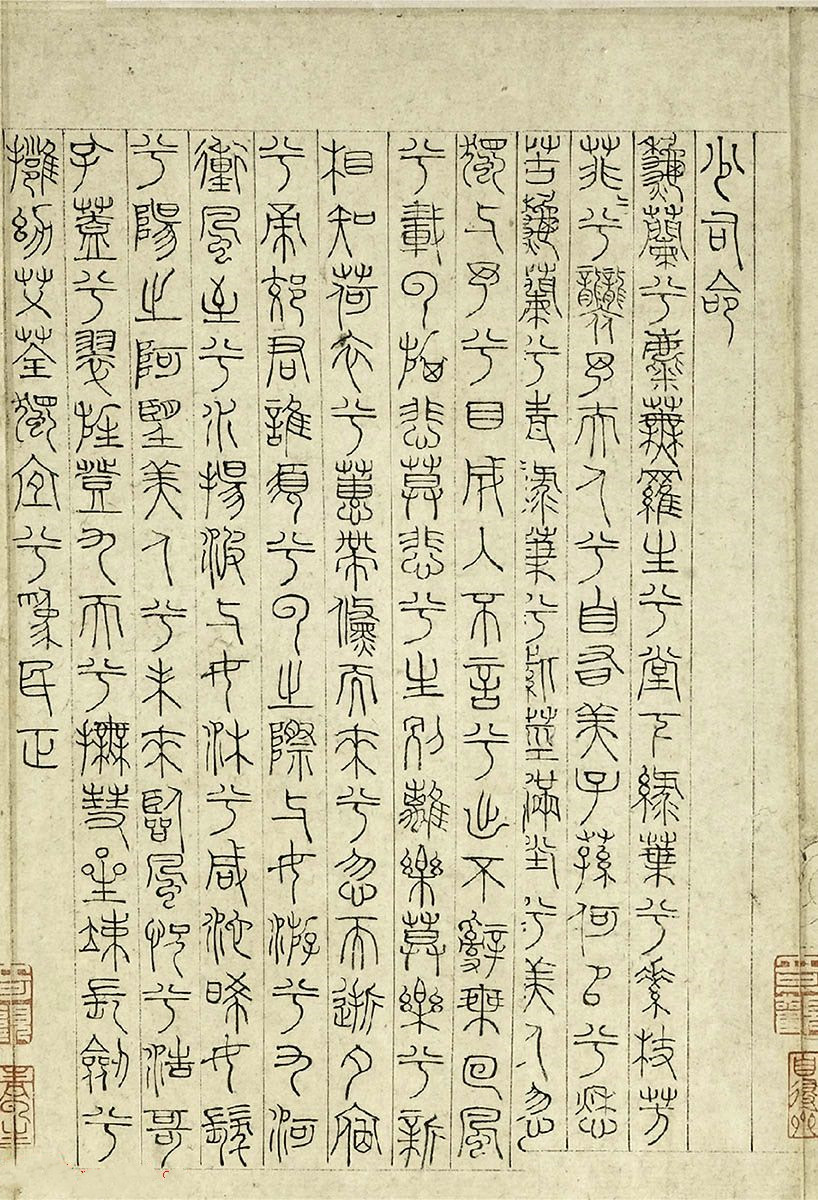 少司命
龝蘭兮麋蕪羅生兮堂下綠葉兮素枝芳
菲〻兮襲予夫人兮自有美子蓀何㠯兮愁
苦龝蘭兮青綠葉兮紫莖滿堂兮美人忽
獨與予兮目成入不言兮出不辭乘回風
兮載雲旗悲莫悲兮生別離樂莫樂兮新
相知荷衣兮蕙帶儵而來兮忽而逝夕宿
兮帝郊君誰須兮雲之際與女游兮九河
衝風至兮水揚波與女沐兮咸池晞女髮
兮陽之阿望美人兮未來臨風怳兮浩哥
孔蓋兮翠旌登九天兮撫彗星竦長劍兮
擁幼艾荃獨宜兮為民正